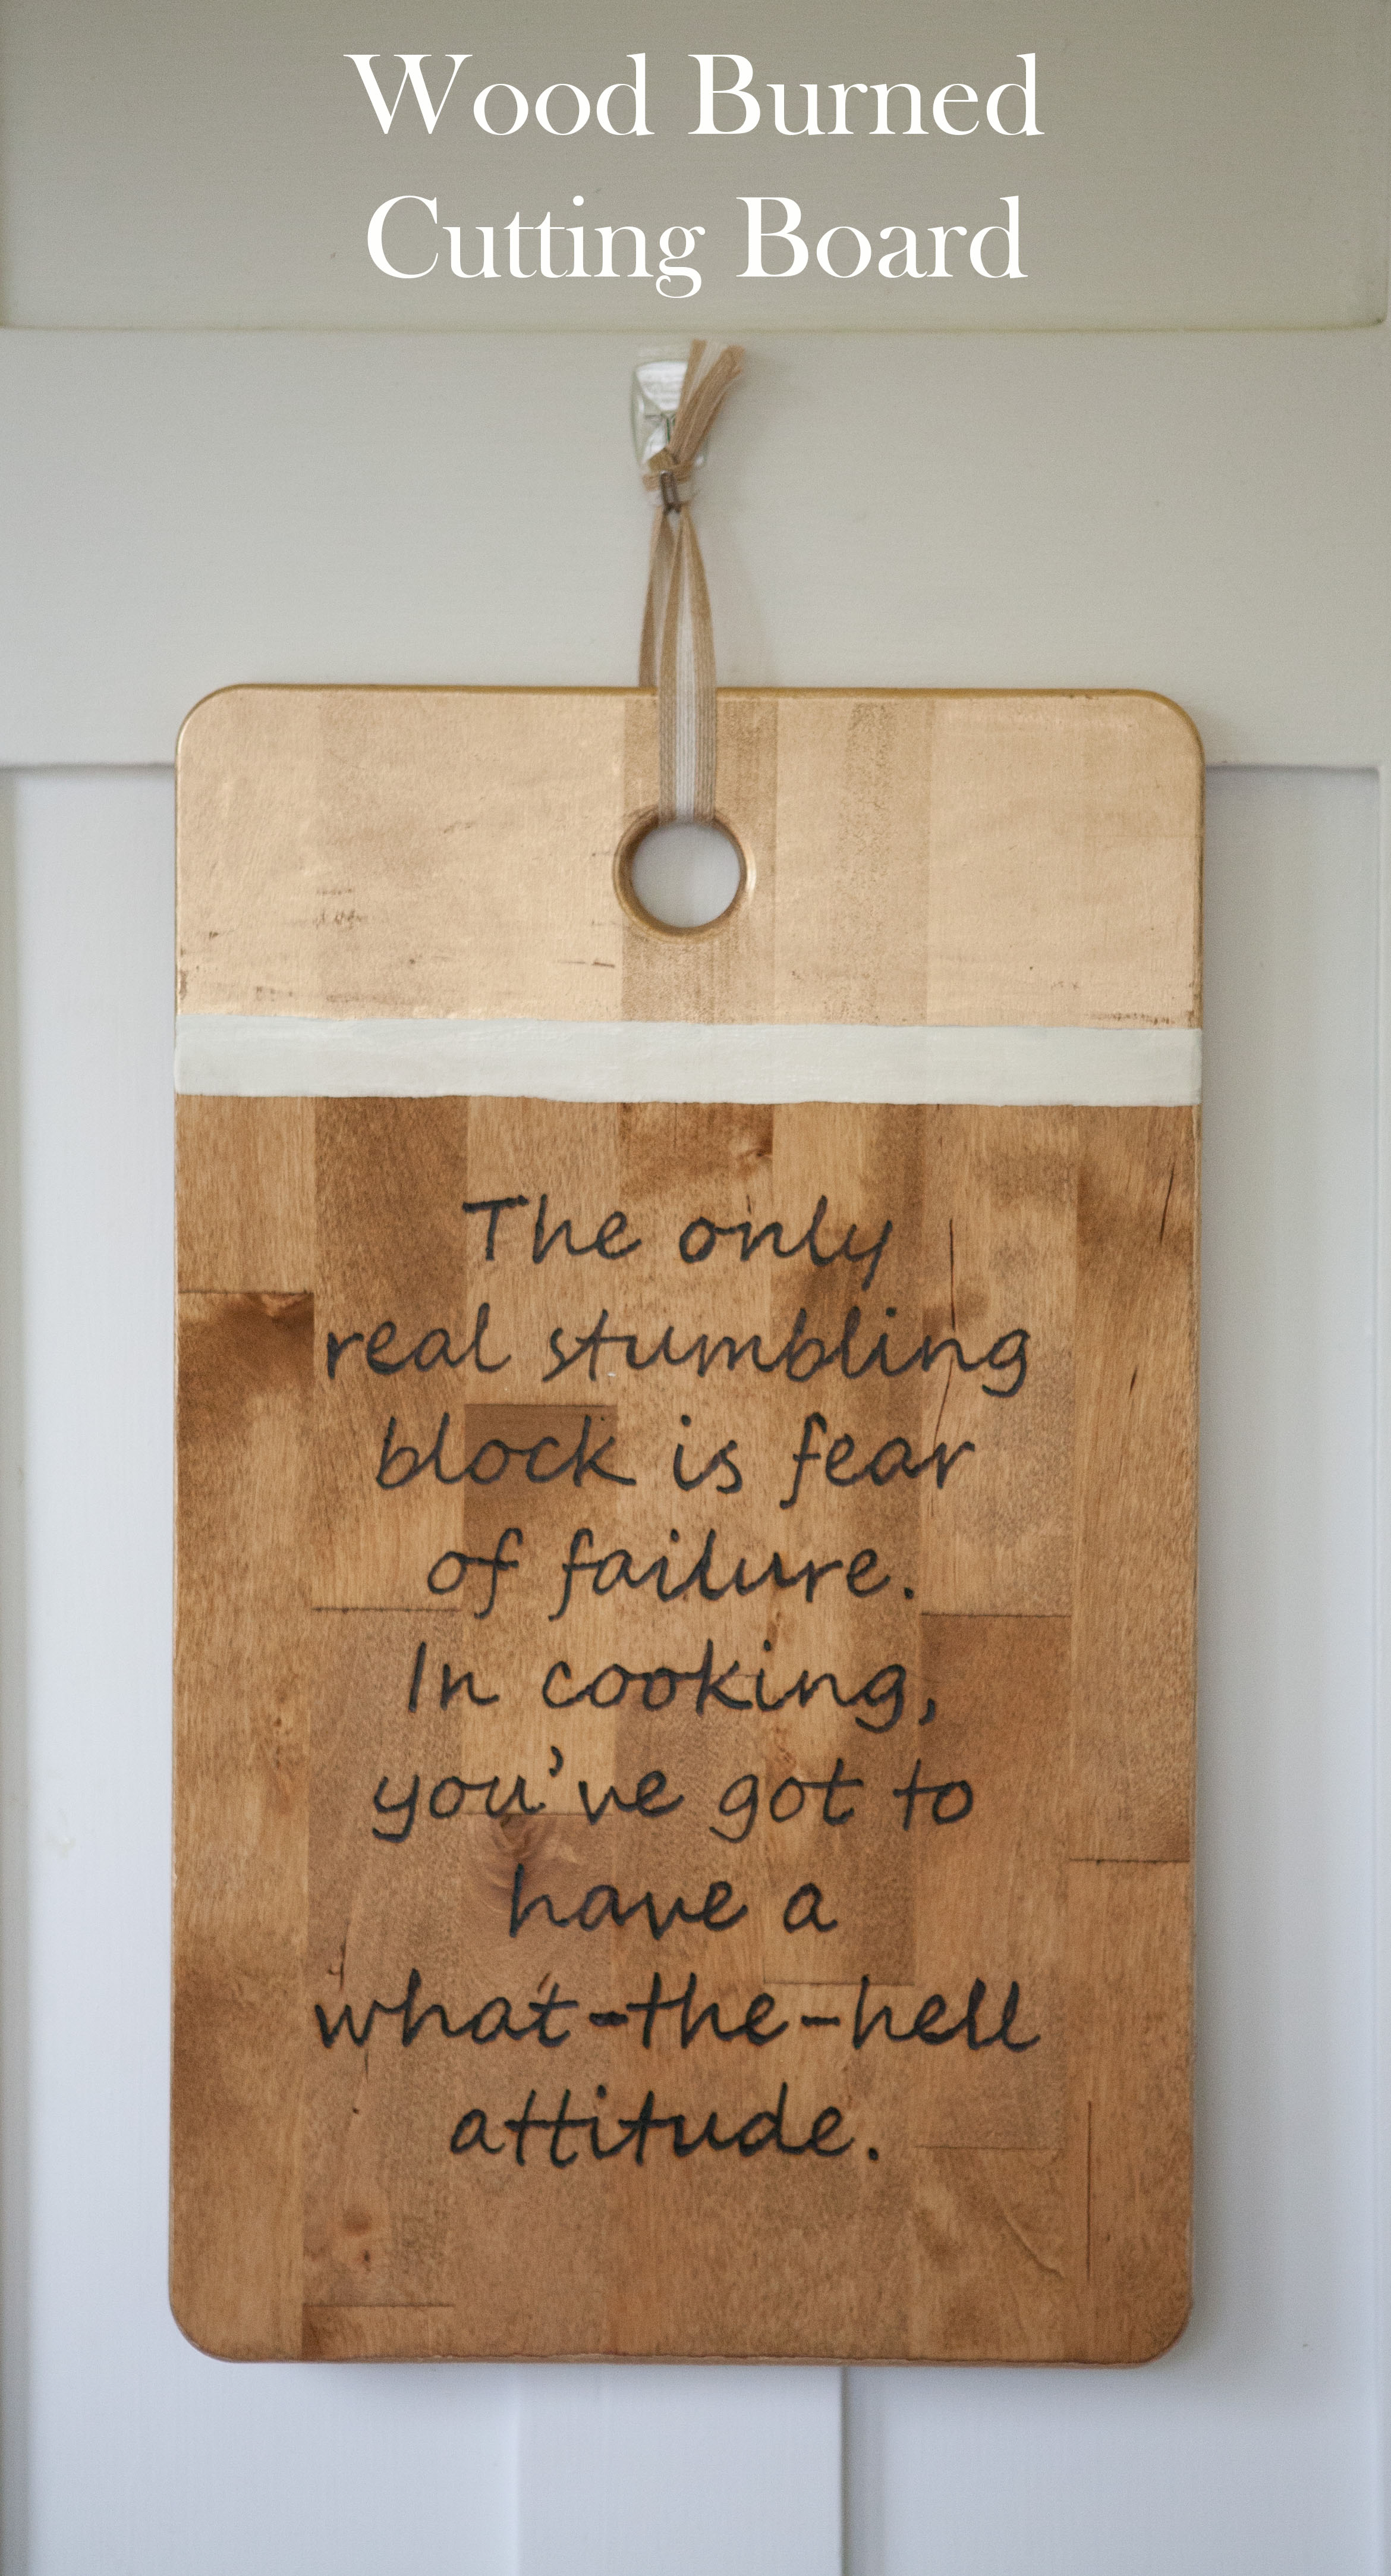 Wood Burned
Cutting Board
The only
real stumbling
block is fear
of failure.
In cooking,
you've got to
have a
what-the-hell
attitude.